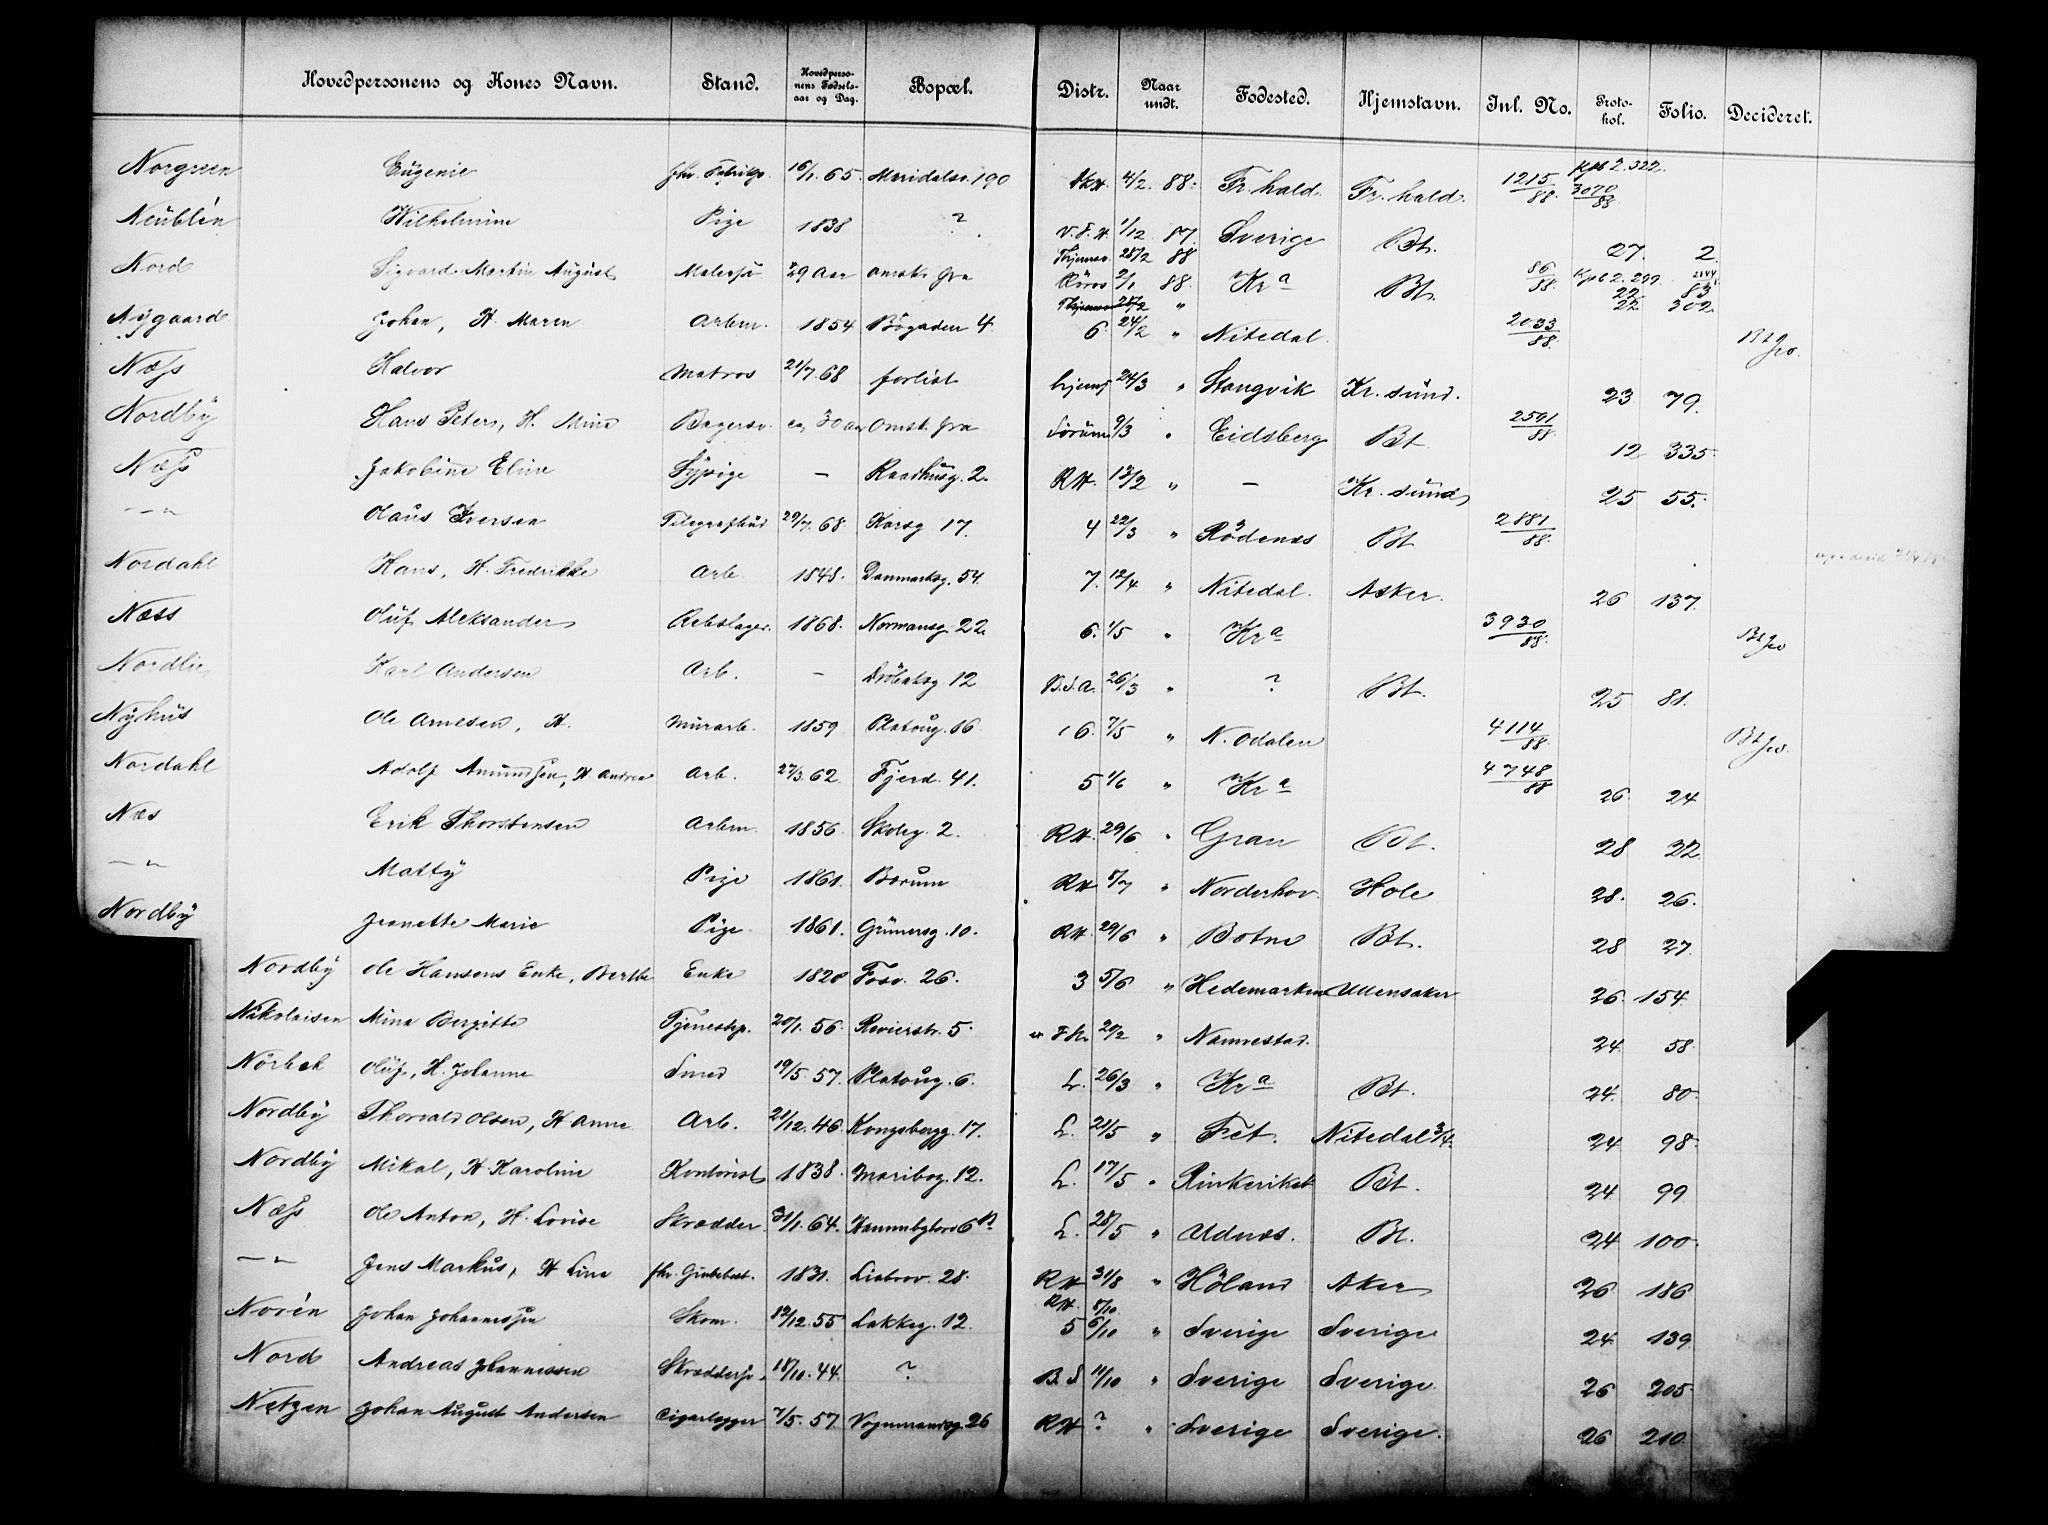 Hovedpersonens og Kones Navn. Stand. Hovedpersonens Fødselsaar og Dag. Bopæl. Distr. Naar undt. Fødested. Hjemstavn. Inl. No. Protokol. Folio. Decideret.
Norgreen Eügenie fhv. Fabrikp. 16/1. 65. Maridalsv. 190 4/2. 88. Fr.hald. Fr.hald. 1215/88. Kpb 2. 322. 3070/88
Neüblén Wilhelmine Pige 1838 ? 1/12. 87. Sverige Bt. 27. 2.
Nord Sigvard Martin August Malersv. 29 Aar omstr. fra Røros 2/1 88. Kra Bt. 86/88. Kpb 2. 299. 22. 83 22. 302.
Nygaard Johan, H. Maren Arbm. 1854 Bögaden 4. 6 24/2 " Nitedal. 2033/88. Bt
Næss Halvor Matros 21/7. 68 forlist hjemf 24/3 " Stangvik Kr.sünd. 23 79.
Nordby Hans Peter, H. Mina Bagersv. ca. 30 aar omst. fra Sørum 9/3 " Eidsberg Bt. 2501/88. 12 335.
Næss Jakobine Eline Sypige — Raadhusg. 2. RH. 13/2 " — Kr.sünd 25 55.
—"— Olaüs Iversen Telegrafbüd 29/7. 68. Korsg. 17. 4 22/3 " Rödenæs Bt 2881/88.
Nordahl Hans, H. Fredrikke Arb. 1848. Danmarksg. 54. 7. 12/4 " Nitedal. Asker. 26 137.
Næss Olüf Aleksander Rebslager. 1868. Normansg. 22. 6. 1/5 " Kra 3930/88. Bt
Nordlie Karl Andersen Arb. — Dröbaksg. 12 B.S.A. 26/3 " ? Bt. 25 81.
Nyhüs Ole Arnesen, H. Mürarb. 1859 Platoüg. 16. 6. 7/5 " N. Odalen 4114/88. Bt
Nordahl Adolf Amündsen, H. Andrea Arb. 27/3. 62. Fjerd. 41. 5 1/6 " Kra 4748/88 26. 24
Næs Erik Thorstensen Arbm. 1856. Skoleg. 2. RH. 29/6 " Gran Bt. 28 22.
—"— Matty Pige 1861. Bærum RH 5/7 " Norderhov. Hole 28. 26.
Nordby Jeanette Marie Pige. 1861. Grünersg. 10. RH. 29/6 " Botne Bt. 28 27.
Nordby Ole Hansens Enke, Berthe Enke 1828 Fosv. 26. 3 5/6 " Hedemarken Ullensaker 26. 154.
Nikolaisen Mina Bergitte Tjenestep. 20/1. 56. Revierstr. 5. 20/2 " Namnestad. 24. 58.
Nörbek Olüf, H. Johanne Smed 19/5. 57. Platoüg. 6. L. 26/3 " Kra Bt. 24. 80.
Nordby Thorvald Olsen, H Anne Arb. 21/12. 46. Kongsbergg. 17. L. 21/5 " Fet. Nitedal 3/4. 24 98.
Nordby Mikal, H. Karoline Kontorist 1838. Maribog. 12. L. 17/5 " Rinkeriket Bt. 24 99.
Næss Ole Anton, H. Lovise Skrædder. 31/1. 64. 6 L. 28/5 " Udnæs. Bt. 24 100.
—"— Jens Markus, H Line fhv. 1831. Liabrov. 28. RH 31/8 " Höland Aker 26 186
Norén Johan Johannessen Skom. 12/12. 55 Lakkeg. 12. RH. 5/10. 5 6/10 " Sverige Sverige 24. 139.
Nord Andreas Johannessen Skræddersv. 18/10. 44. ? B.S 11/10 " Sverige Sverige. 26 205.
Netzen Johan August Andersen Cigarlægger 7/5. 57. Vognmandsg. 26 RH ? " Sverige Sverige. 26 210.